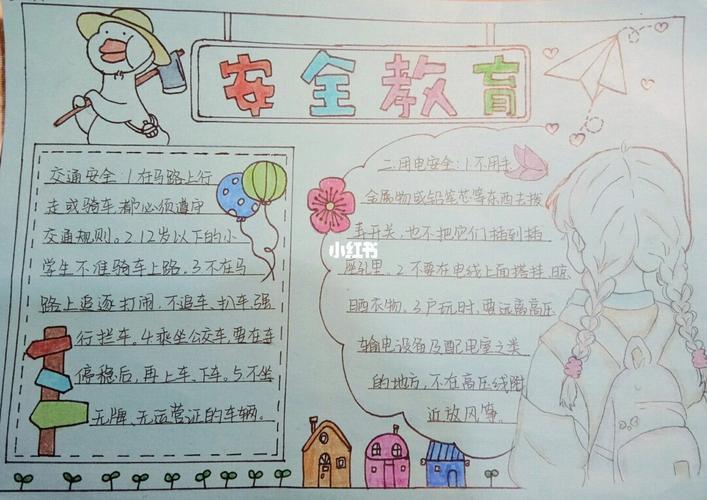 安全教育
交通安全:1.在马路上行
走或骑车都必须遵守
交通规则。2.12岁以下的小
学生不准骑车上路。3.不在马
路上追逐打闹,不追车、扒车、强
行拦车。4.乘坐公交车要在车
停稳后,再上车、下车。5.不坐
无牌、无运营证的车辆。
二.用电安全:1.不用手、
金属物或铅笔芯等东西去拨
弄开关,也不把它们插到插
座孔里。2.不要在电线上面搭挂、晾
晒衣物。3.户玩时,要远离高压
输电设备及配电室之类
的地方,不在高压线附
近放风筝。
小红书